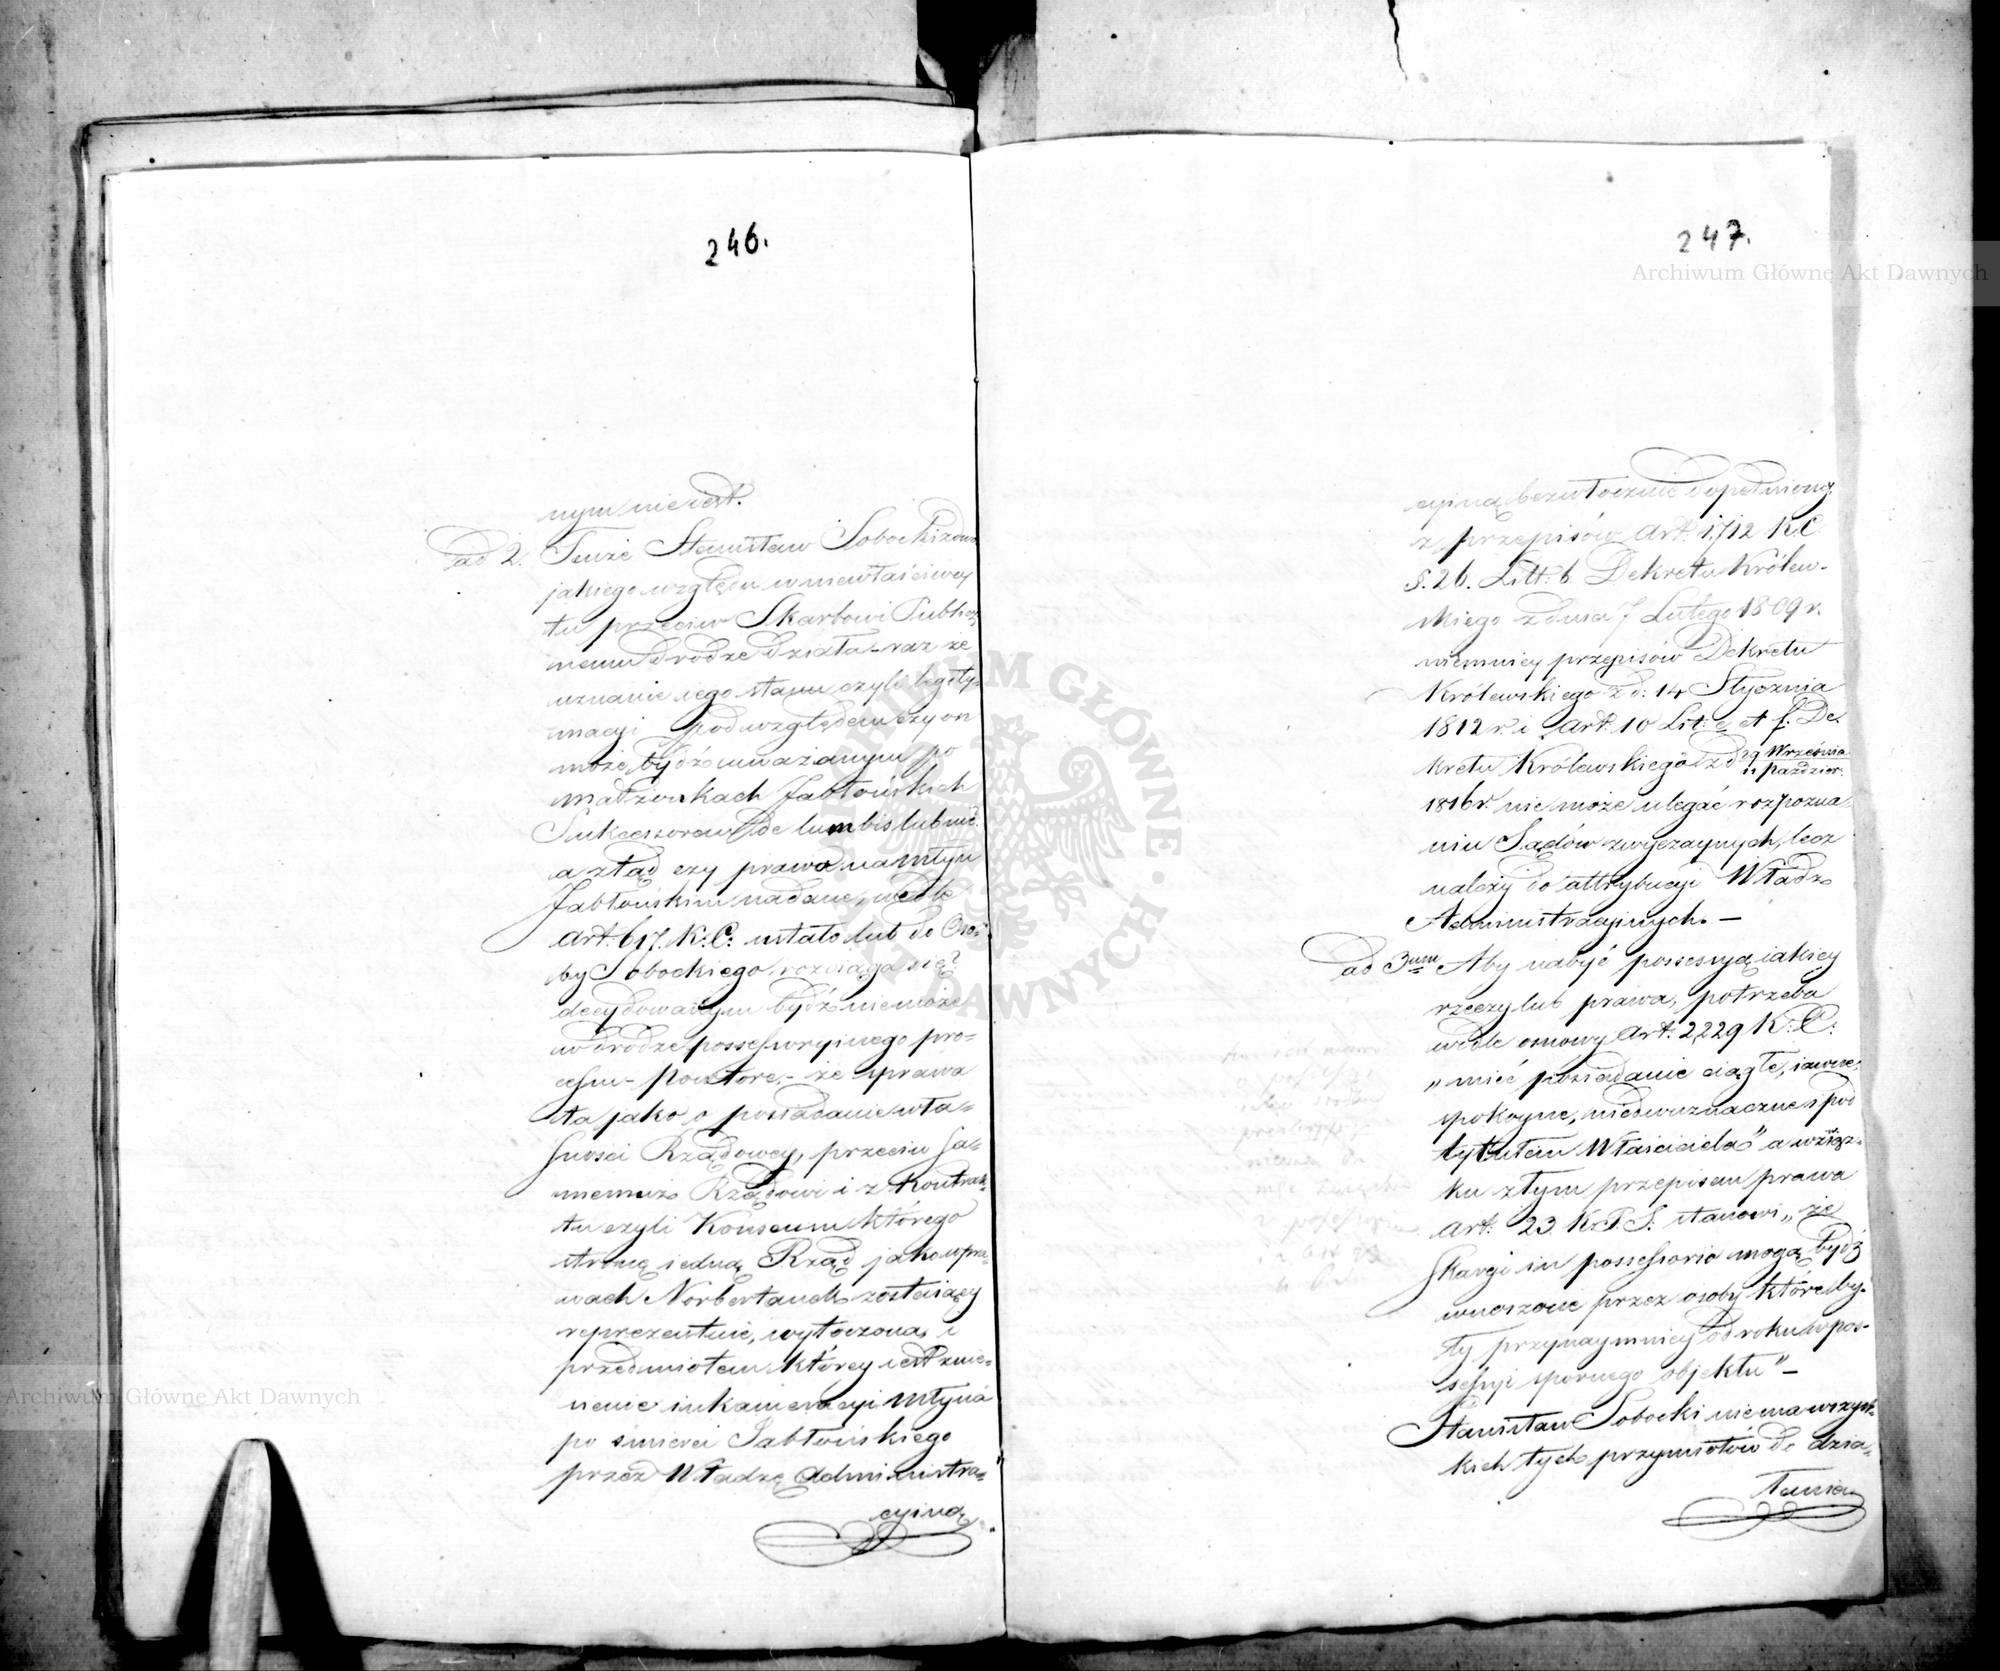 246.
nym nie jest.
ad 2. Tenże Stanisław Sobocki z dwo
jakiego względu w niewłaściwey
tu przeciw Skarbowi Publicz
nemu drodze działa – raz że
uznanie iego stanu czyli legity-
macyi pod względem czy on
może bydź uważanym po
małżonkach Jabłońskich
Sukcessorem de lumbis lub nie.
a ztąd czy prawo na młyn
Jabłońskim nadane, wedle
Art. 617. K. C. ustało lub do Oso-
by Sobockiego rozciąga się?
decydowanym bydź nie może
w drodze possessoryinego pro-
cessu – powtóre, – że sprawa
ta jako o posiadanie wła-
sności Rządowey, przeciw sa-
memuż Rządowi i z Kontrak-
tu czyli Konsensu którego
stronę iedną Rząd jako w pra-
wach Norbertanek zostaiący
reprezentuie, wytoczona, i
przedmiotem którey iest znie-
sienie inkameracyi młyna
po śmierci Jabłońskiego
przez Władzę Administra-
cyiną
247.
cyiną bezwłocznie dopełnioney
z przepisów Art. 1712 K. C.
§. 26. Litt. b. Dekretu Królew-
skiego z dnia 7 Lutego 1809 r.
niemniey przepisów Dekretu
Królewskiego z d: 14 Stycznia
1812 r. i Art. 10 Lit: e et f. De-
kretu Królewskiego z d 29 Września
11 Paździer.
1816 r. nie może ulegać rozpozna-
niu Sądów zwyczaynych, lecz
należy do attrybucyi Władz
Administracyinych. –
ad 3um Aby nabyć possessyą iakiey
rzeczy lub prawa, potrzeba
wedle osnowy Art. 2229 K: C:
„mieć posiadanie ciągłe, iawne,
spokoyne, niedwuznaczne i pod
tytułem Właściciela" a w związ-
ku z tym przepisem prawa
Art: 23 K. P. S. stanowi „że
skargi in possessorio mogą bydź
wnoszone przez osoby które by-
ły przynaymniey od roku w pos-
sessyi spornego objektu" –
Stanisław Sobocki nie ma wszyst-
kich tych przymiotów do dzia-
łania
Archiwum Główne Akt Dawnych
Archiwum Główne Akt Dawnych
ARCHIWUM GŁÓWNE AKT DAWNYCH